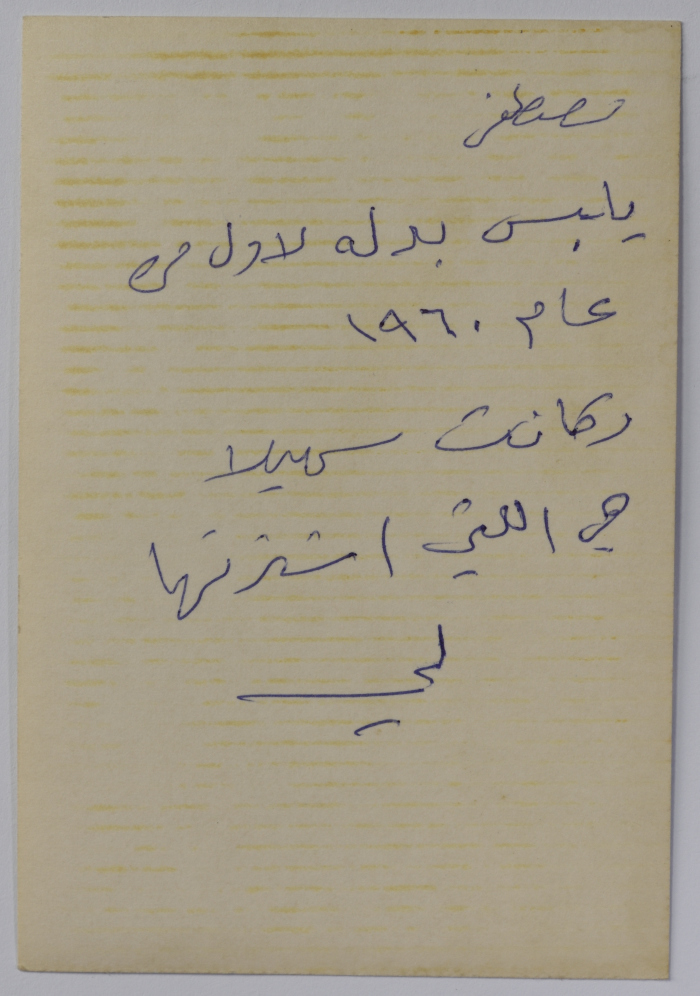 مصطفى
يلبس بدله لاول مره
عام ١٩٦٠
وكانت سهيلا
هي اللتي اشترتها
لي